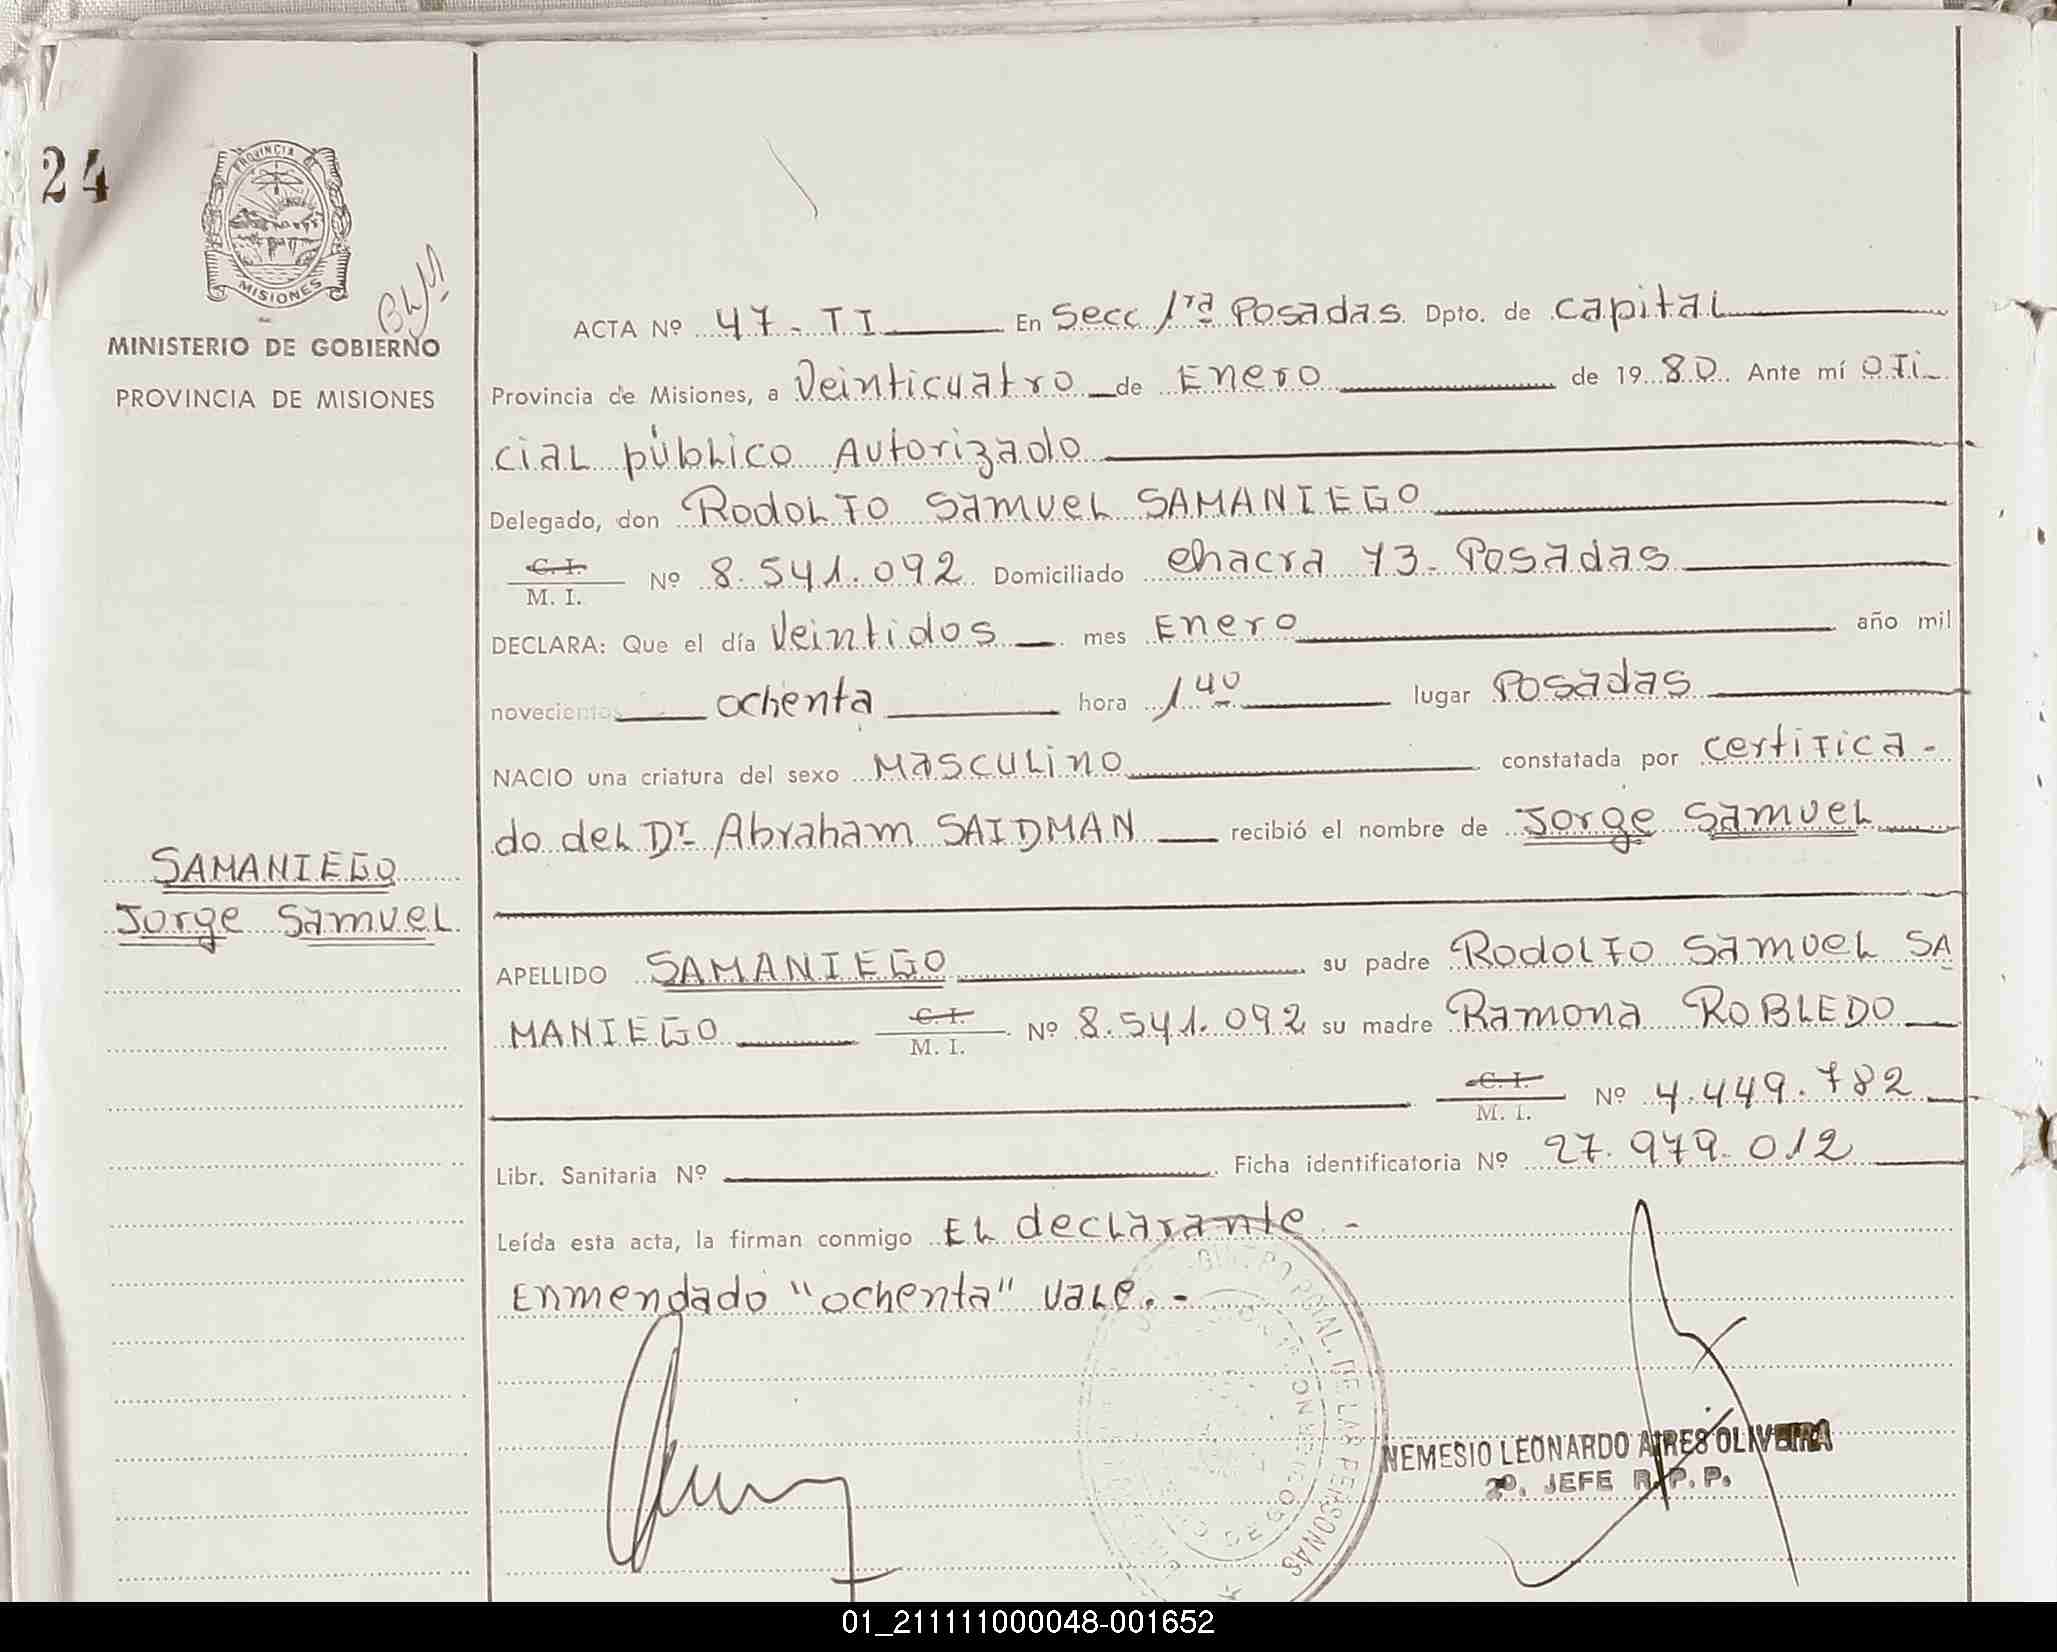 24
PROVINCIA DE
MISIONES
MINISTERIO DE GOBIERNO
PROVINCIA DE MISIONES
SAMANIEGO
Jorge Samuel
ACTA Nº 47 - TI En Secc 1ra Posadas Dpto. de Capital
Provincia de Misiones, a Veinticuatro de Enero de 1980 Ante mí ofi
cial público Autorizado
Delegado, don Rodolfo Samuel SAMANIEGO
C. I.
M. I. Nº 8.541.092 Domiciliado chacra 73 - Posadas
DECLARA: Que el día Veintidos mes Enero año mil
novecientos ochenta hora 1 40 lugar Posadas
NACIO una criatura del sexo Masculino constatada por certifica -
do del Dr. Abraham SAIDMAN recibió el nombre de Jorge Samuel
APELLIDO SAMANIEGO su padre Rodolfo Samuel SA
MANIEGO C. I. M. I. Nº 8.541.092 su madre Ramona ROBLEDO
C. I. M. I. Nº 4.449.782
Libr. Sanitaria Nº Ficha identificatoria Nº 27.979.012
Leída esta acta, la firman conmigo El declarante. -
Enmendado "ochenta" vale. -
NEMESIO LEONARDO AIRES OLIVEIRA
2º. JEFE R.P.P.
01_211111000048-001652